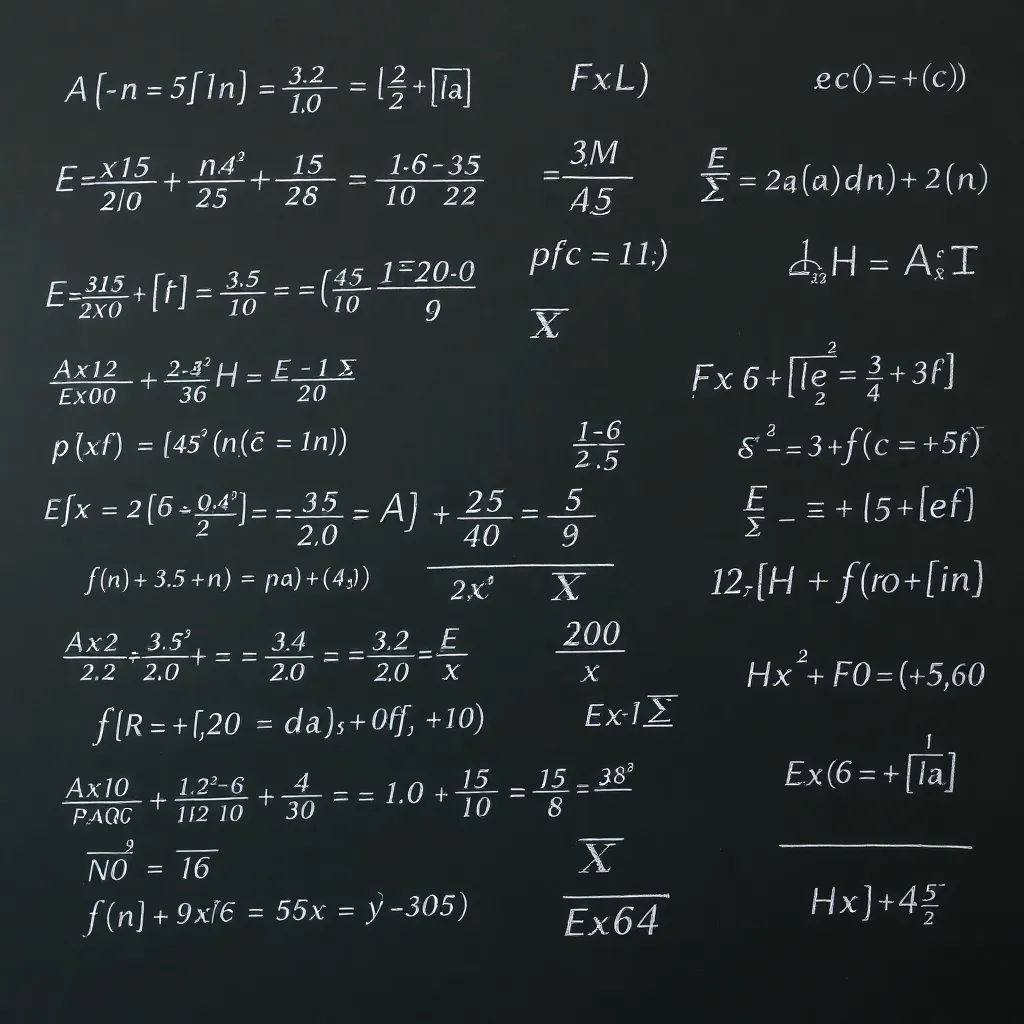 A[-n = 5⌈1n] = 3.2/1.0 = ⌊2/2 + [la]
FxL)
ec() = +(c))
E = x15/2/0 + n.4²/25 + 15/28 = 1.6-35/10 22
= 3M/A5
E/Σ = 2a(a)dn) + 2(n)
E = 315/2x0 + [f] = 3.5/10 = = (45/10 1=20-0/9
pfc = 11;)
H = A I
X
Ax12/Ex00 + 2-3²/36 H = E-1 Σ/20
Fx 6 + [le/2 ² = 3/4 + 3f]
p(xf) = [45² (n(c̄ = 1n))
1-6/2.5
8 ² - = 3 + f(c = +5f)
E∫x = 2[6 ÷ 0.4³/2] = = 35/2.0 = A] + 25/40 = 5/9
E/Σ - ≡ + [5 + [ef]
f(n) + 3.5 + n) = pa) + (4,))
2,x⁰ X
12,-[H + f(ro + [in]
Ax2/2.2 ÷ 3.5³/2.0 + = = 3.4/2.0 = = 3.2/2.0 = E/x
200/x
Hx² + F0 = (+5,60
f(R = +⌈,20 = da)s + 0ff, +10)
Ex-1 Σ
Ax10/PAQC + 1.2²-6/112 10 + 4/30 = = 1.0 + 15/10 = 15/8 = 38³
Ex(6 = + [la] 1
NO⁹ = 16
X
f(n] + 9x/6 = 55x = y -305)
Ex64
Hx] + 4 5/2